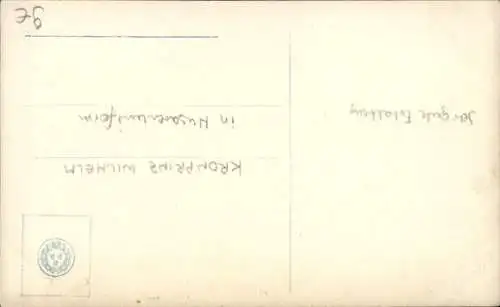 KRONPRINZ WILHELM
in Husarenuniform
sehr gute Erhaltung
9€